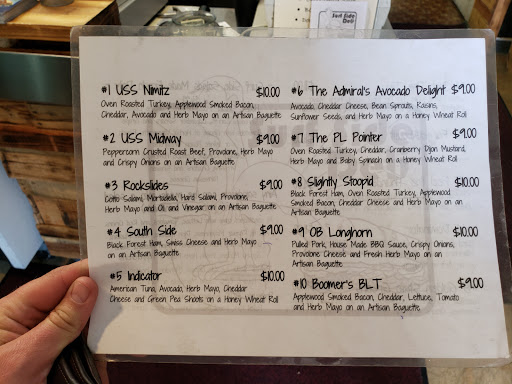 Surf Side
Deli
#1 USS Nimitz $10.00
Oven Roasted Turkey, Applewood Smoked Bacon,
Cheddar, Avocado and Herb Mayo on an Artisan Baguette
#2 USS Midway $9.00
Peppercorn Crusted Roast Beef, Provolone, Herb Mayo
and Crispy Onions on an Artisan Baguette
#3 Rockslides $9.00
Cotto Salami, Mortadella, Hard Salami, Provolone,
Herb Mayo and Oil and Vinegar on an Artisan Baguette
#4 South Side $9.00
Black Forest Ham, Swiss Cheese and Herb Mayo
on an Artisan Baguette
#5 Indicator $10.00
American Tuna, Avocado, Herb Mayo, Cheddar
Cheese and Green Pea Shoots on a Honey Wheat Roll
#6 The Admiral's Avocado Delight $9.00
Avocado, Cheddar Cheese, Bean Sprouts, Raisins,
Sunflower Seeds, and Herb Mayo on a Honey Wheat Roll
#7 The PL Pointer $9.00
Oven Roasted Turkey, Cheddar, Cranberry Dijon Mustard,
Herb Mayo and Baby Spinach on a Honey Wheat Roll
#8 Slightly Stoopid $10.00
Black Forest Ham, Oven Roasted Turkey, Applewood
Smoked Bacon, Cheddar Cheese and Herb Mayo on an
Artisan Baguette
#9 OB Longhorn $10.00
Pulled Pork, House Made BBQ Sauce, Crispy Onions,
Provolone Cheese and Fresh Herb Mayo on an
Artisan Baguette
#10 Boomer's BLT $9.00
Applewood Smoked Bacon, Cheddar, Lettuce, Tomato
and Herb Mayo on an Artisan Baguette